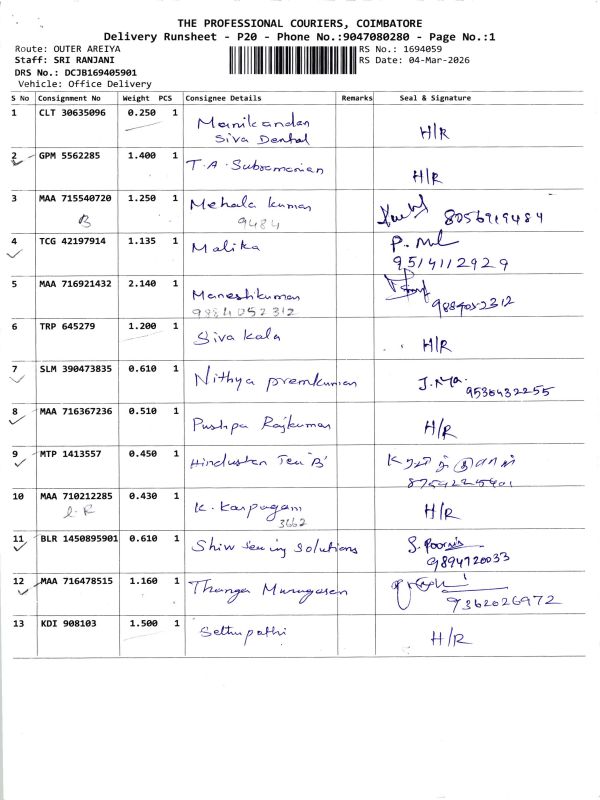 THE PROFESSIONAL COURIERS, COIMBATORE
Delivery Runsheet - P20 - Phone No.:9047080280 - Page No.:1
Route: OUTER AREIYA RS No.: 1694059
Staff: SRI RANJANI RS Date: 04-Mar-2026
DRS No.: DCJB169405901
Vehicle: Office Delivery
S No Consignment No Weight PCS Consignee Details Remarks Seal & Signature
1 CLT 30635096 0.250 1 Manikandan
Siva Dental H/R
2 GPM 5562285 1.400 1 T.A. Subramanian H/R
3 MAA 715540720 1.250 1 Mehala kumar 8056919484
B 9484
4 TCG 42197914 1.135 1 Malika P.
9514112929
5 MAA 716921432 2.140 1 Maneshkumar
9884052312 9884052312
6 TRP 645279 1.200 1 Siva kala H/R
7 SLM 390473835 0.610 1 Nithya premkumar
9536432255
8 MAA 716367236 0.510 1 Pushpa Rajkumar H/R
9 MTP 1413557 0.450 1 Hindustan Tea 'B'
10 MAA 710212285 0.430 1 K. Karpagam H/R
3662
11 BLR 1450895901 0.610 1 Shiw Sewing Solutions S.
9894720033
12 MAA 716478515 1.160 1 Thanga Murugasen
9362026972
13 KDI 908103 1.500 1 Sethupathi H/R